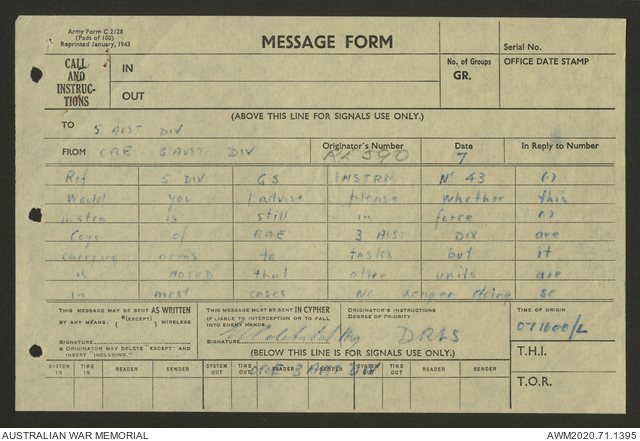 Army Form C.2128
(Pads of 100)
Reprinted January, 1943
MESSAGE FORM
Serial No.
CALL AND INSTRUC-TIONS
IN
OUT
No. of Groups
GR.
OFFICE DATE STAMP
(ABOVE THIS LINE FOR SIGNALS USE ONLY.)
TO 5 AUST DIV
FROM CRE 3 AUST DIV
Originator's Number
RL 590
Date
7
In Reply to Number
Ref 5 DIV GS INSTRN No 43 (.)
Would you advise please whether this
instrn is still in force (.)
Coys of RAE 3 AUST DIV are
carrying arms to tasks but it
is NOTED that other units are
in most cases no longer doing so
THIS MESSAGE MAY BE SENT AS WRITTEN
BY ANY MEANS. (*(EXCEPT) ) WIRELESS
SIGNATURE
ORIGINATOR MAY DELETE "EXCEPT" AND INSERT "INCLUDING."
THIS MESSAGE MUST BE SENT IN CYPHER
IF LIABLE TO INTERCEPTION OR TO FALL
INTO ENEMY HANDS.
SIGNATURE
ORIGINATOR'S INSTRUCTIONS
DEGREE OF PRIORITY
DRLS
TIME OF ORIGIN
071000/L
T.H.I.
T.O.R.
(BELOW THIS LINE IS FOR SIGNALS USE ONLY.)
SYSTEM IN TIME IN READER SENDER SYSTEM OUT TIME OUT READER SENDER SYSTEM OUT TIME OUT READER SENDER
CRE 3 AUST DIV
AUSTRALIAN WAR MEMORIAL
AWM2020.71.1395